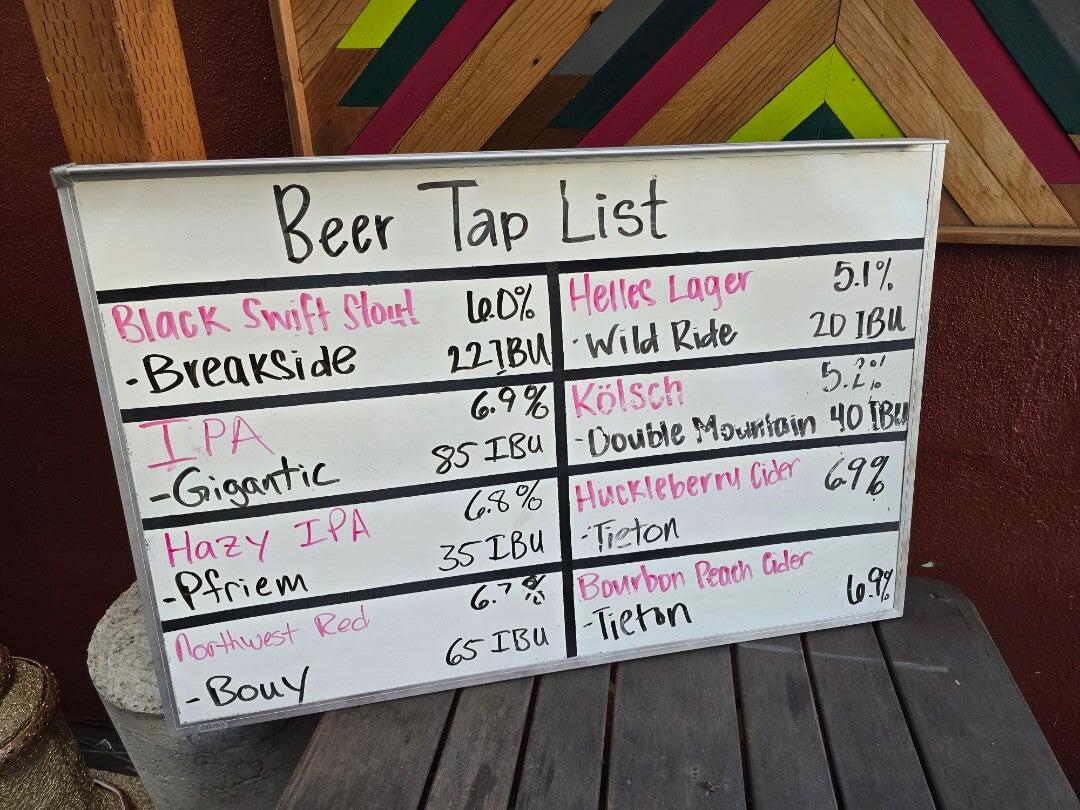 Beer Tap List
Black Swift Stout 6.0%
-Breakside 22 IBU
IPA 6.9%
-Gigantic 85 IBU
Hazy IPA 6.8%
-Pfriem 35 IBU
Northwest Red 6.7%
-Bouy 65 IBU
Helles Lager 5.1%
-Wild Ride 20 IBU
Kölsch 5.2%
-Double Mountain 40 IBU
Huckleberry Cider 6.9%
-Tieton
Bourbon Peach Cider 6.9%
-Tieton